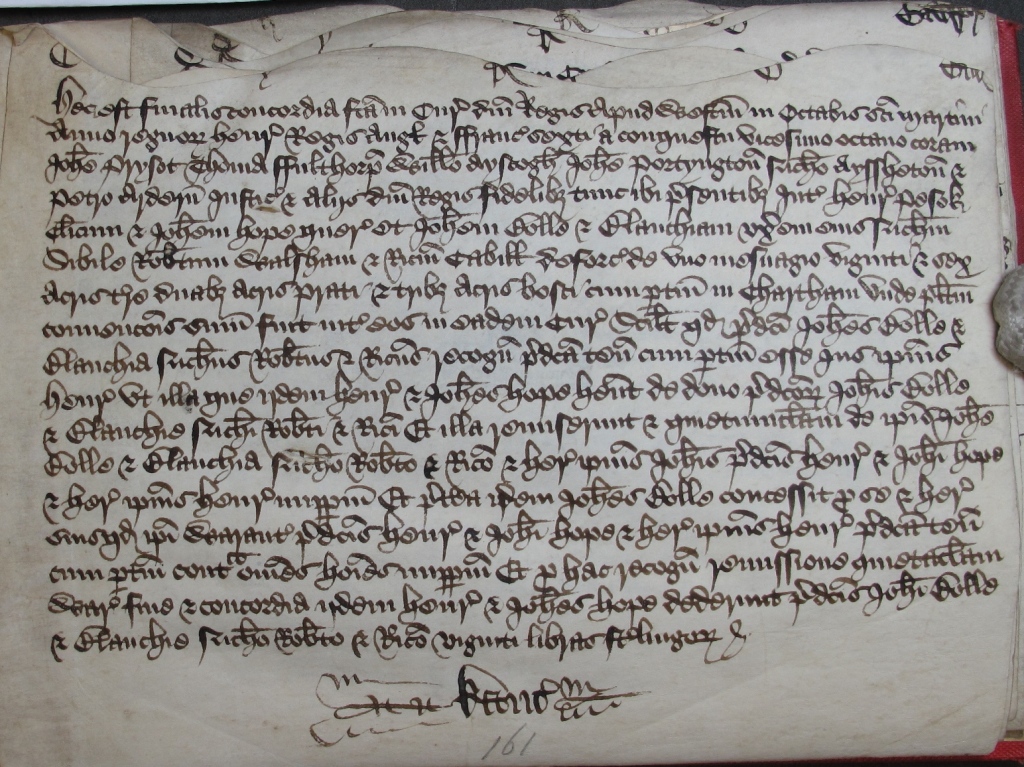 Hec est finalis concordia fca in Cur dni Regis apud Westm in Octabis sci Martini
Anno regnor Henr Regis Angl & ffranc sexti a conquestu vicesimo octavo coram
Johe Prysot Thoma ffulthorp Willo Ayscogh Johe Portyngton Nicho Ayssheton &
Petro Ardern Justic & alijs dni Regis fidelibz tunc ibi psentibz Int Henr
Clicum & Johem Hope quer et Johem & Blanchiam uxem eius Nichm
Robtum Walsham & Ricm deforc de uno mesuagio viginti & sex
acris tre duabz acris prati & tribz acris bosci cum ptin in Chartham Unde plitm
convencois sum fuit int eos in eadem Cur Scilt qd pdci Johes &
Blanchia Nichus Robtus & Ricus recogn pdca ten cum ptin esse jus ipius
Henr ut illa que idem Henr & Johes Hope hent de dono pdcor Johis
& Blanchie Nichi Robti & Rici Et illa remiserunt & quietumclam de ipis Johe
& Blanchia Nicho Robto & Rico & her ipius Johis pdcis Henr & Johi Hope
& her ipius Henr imppm Et ptea idem Johes concessit p se & her
suis qd ipi Warant pdcis Henr & Johi Hope & her ipius Henr pdca ten
cum ptin cont omes hoies imppm Et p hac recogn remissione quietaclam
War fine & concordia idem Henr & Johes Hope dederunt pdcis Johi
& Blanchie Nicho Robto & Rico viginti libras stlingor
Kanc
161